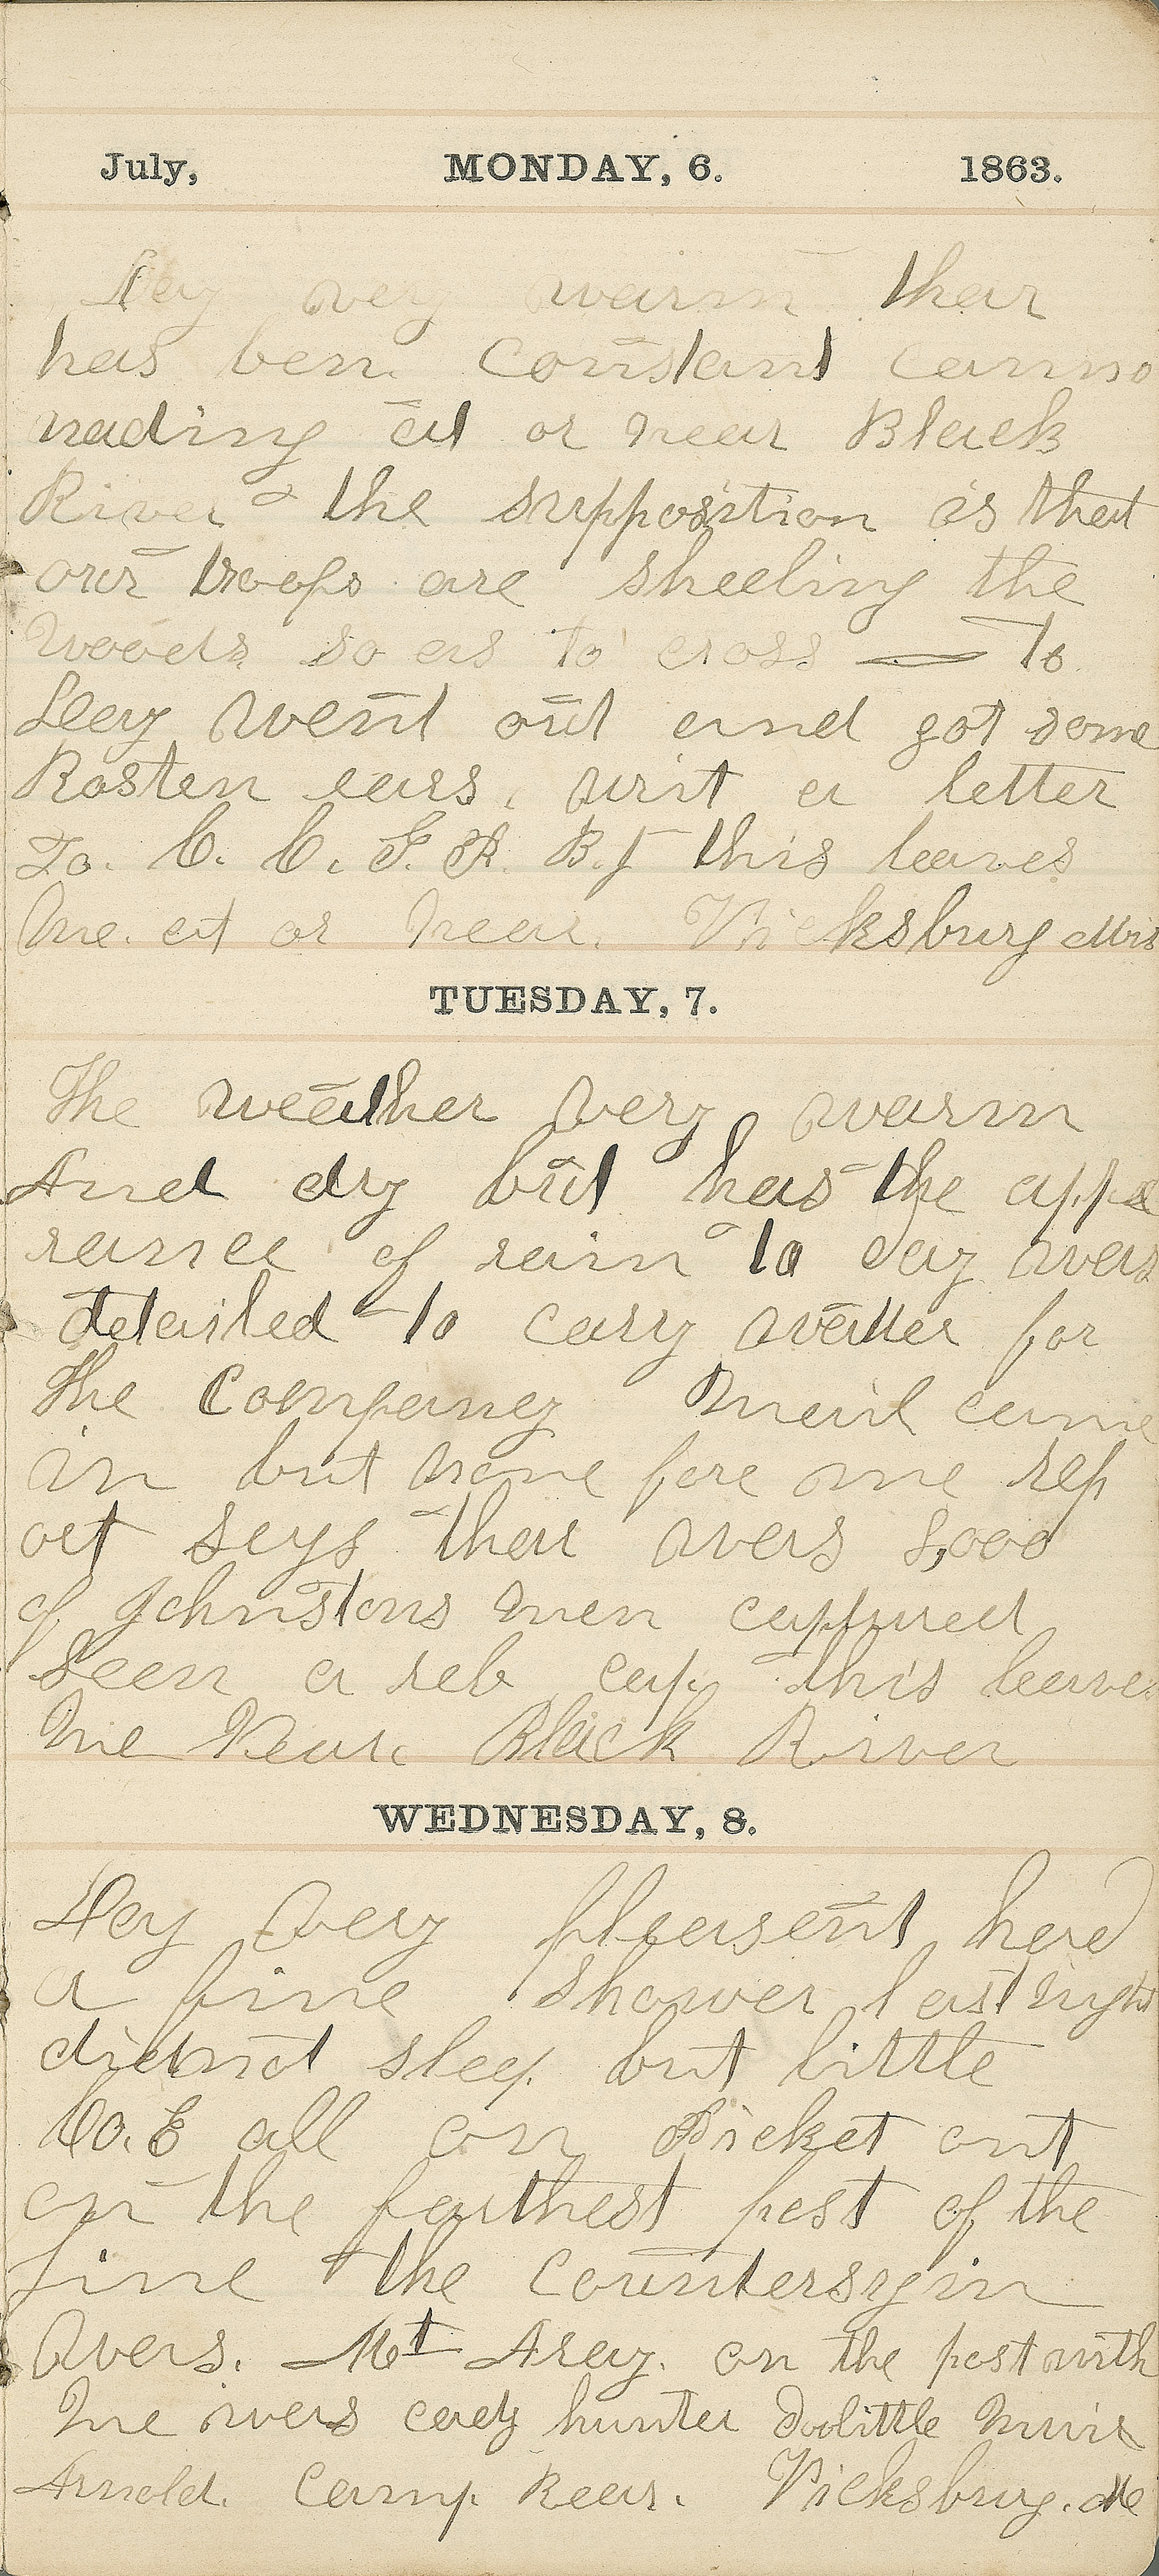 July, MONDAY, 6. 1863.
Day very warm thear
has ben constant canno
nading at or near Black
River the supposition is that
our troops are sheeling the
woods so as to cross — to
Day went out and got some
Rosten ears, writ a letter
to. C. C. F. R. B. this leaves
me. at or near. Vicksburg Mis
TUESDAY, 7.
The weather very warm
And dry but has the appe
rance of rain to day was
detailed to cary watter for
the Company Mail came
in but none fore me rep
ort says thear was 8,000
of Johnstons men captured
Seen a reb cap. this leaves
me Near Black River
WEDNESDAY, 8.
Day very pleasent had
a fine shower last night
didnot sleep but little
Co. E all on Picket out
on the farthest post of the
line the countersygin
was. Mt Airy. on the post with
me was cady hunter doolittle
Arnold. Camp Rear. Vicksburg.